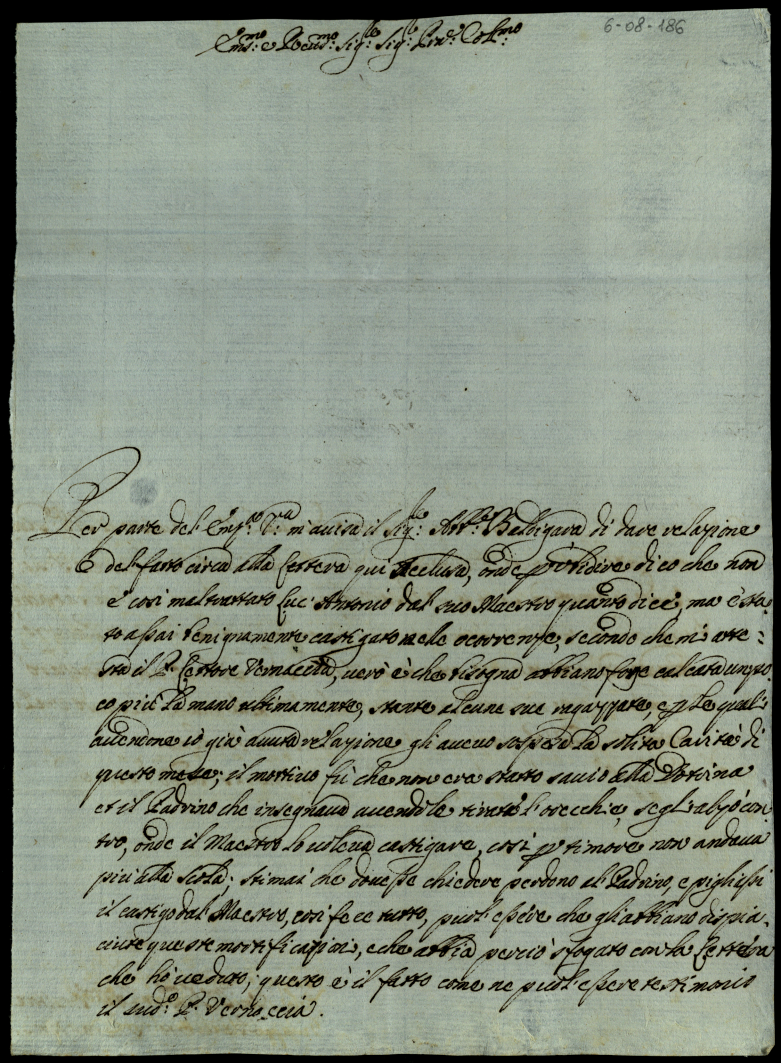 6-08-186
Em:mo e Reu:mo Sig:re Sig:re Pne Col:mo
Per parte del Em:za V:ra m'auisa il Sig:r Abb:e Beldigara di dare relazione
del fatto circa alla lettera qui acclusa, onde p ubidire dico che non
è così maltrattato Luc'Antonio dal suo Maestro quanto dice, ma è sta
to assai benignamente castigato nele ocorrenze, secondo che mi atte:
sta il P. Lettore Vernaccia, uero è che bisogna abbiano forse calcata un po
co più la mano ultimamente, stante alcune sue ragazzate, e p le quali
auendone io già auuta relazione gli aueuo sospeso la solita Carità di
questo mese; il mottiuo fù che non era statto sauio alla Dotrina
et il Padrino che insegnaua auendole tirate l'orecchie, se gli alzò con
tro, onde il Maestro lo uoleua castigare, così p timore non andaua
più alla scola; stimai che douesse chiedere perdono al Padrino, e pigliassi
il castigo dal Maestro, così fece tutto, puol essere che gli abbiano dispia:
ciute queste mortificazioni, e che abbia perciò sfogato con la lettera
che hò ueduto; questo è il fatto come ne puol essere testimonio
il sud:o P. Vernaccia.